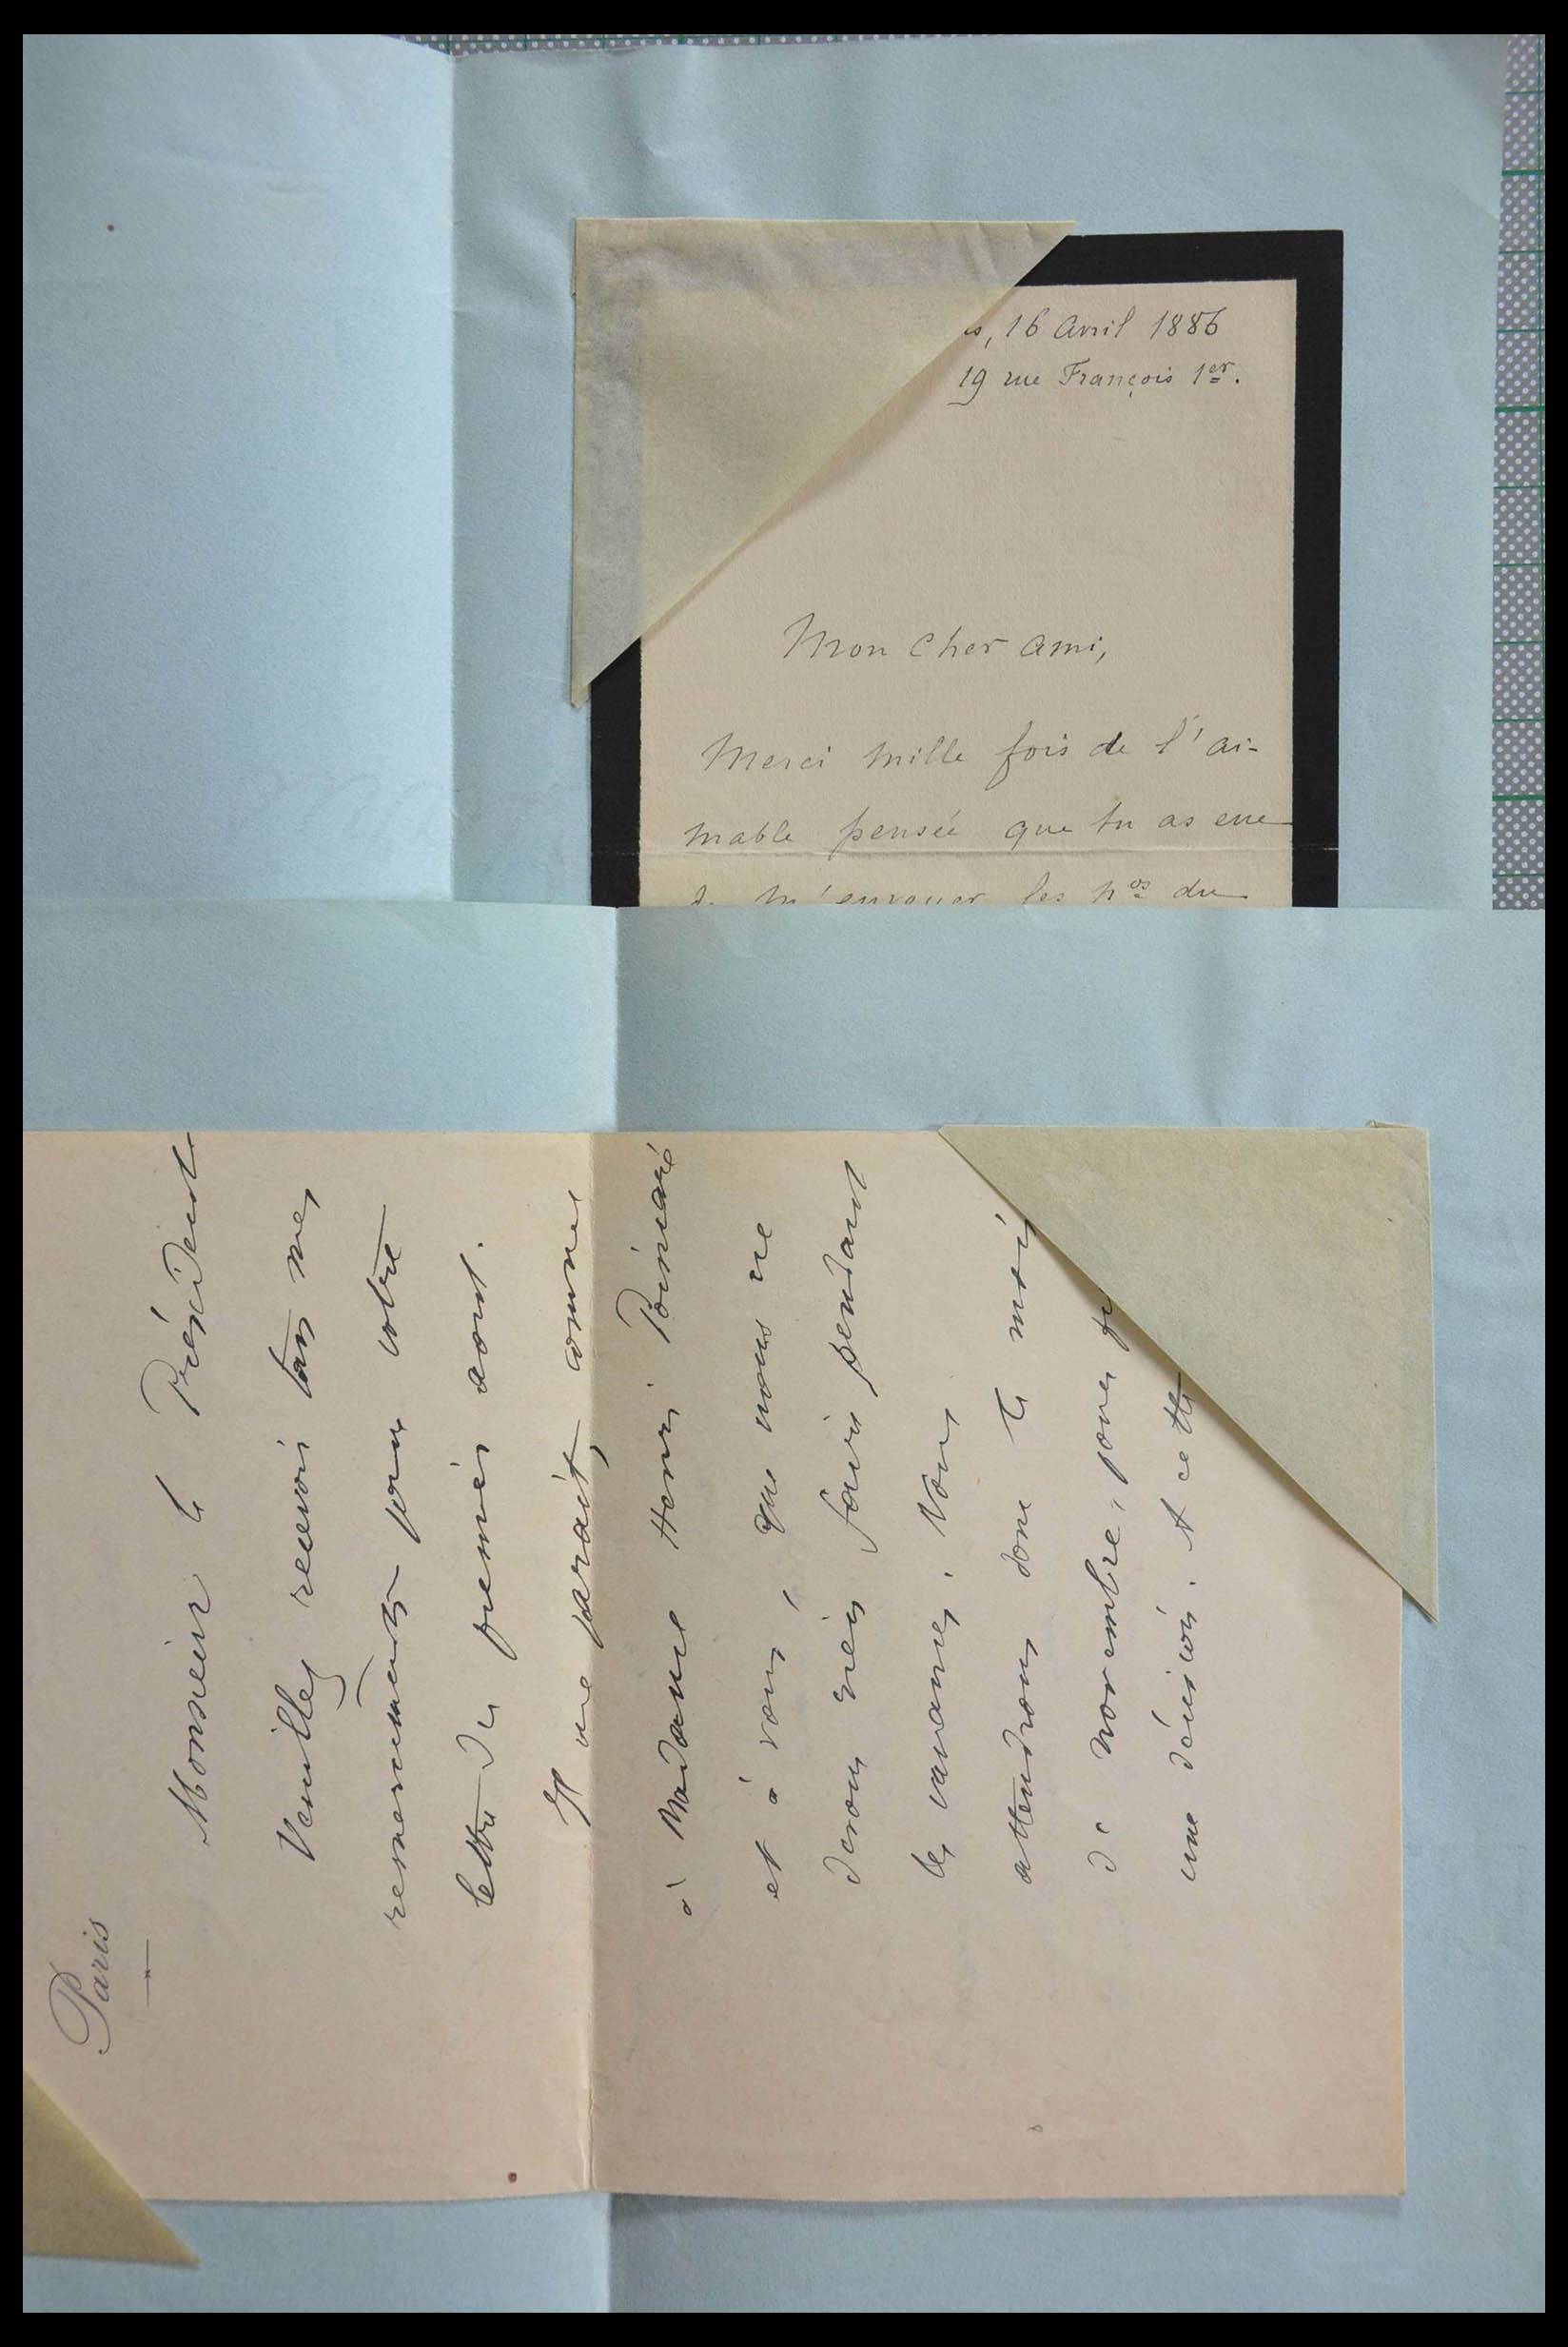 16 Avril 1886
19 rue François 1er.
Mon cher ami,
Merci mille fois de l'ai-
mable pensée que tu as eue
de m'envoyer les nos du
Paris
Monsieur le Président
Veuillez recevoir tous mes
remerciements pour votre
lettre du premier août.
Il me paraît, comme
à Madame Henri Poincaré
et à vous, que nous ne
devons rien faire pendant
les vacances. Nous
attendrons donc le mois
de novembre, pour
une décision. A cette